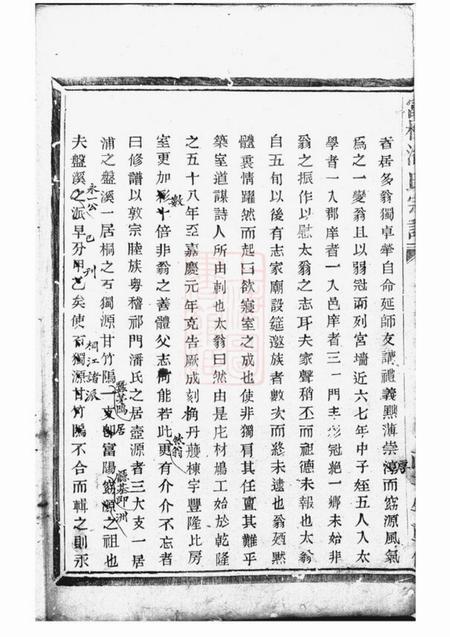 者居多翁獨卓華自命延師友講禮義興薄崇淳而窈源風氣
為之一變翁且以弱冠而列宮墻近六七年中子姪五人入太
學者一入郡庠者一入邑庠者三一門生彩冠絕一鄉未始非
翁之振作以慰太翁之志耳夫家聲稱丕而祖德未報也太翁
自五旬以後有志家廟設筵邀族者數次而終未逮也翁廼默
體衷情躍然而起曰欲寢室之成也使非獨肩其任亶其難乎
築室道謀詩人所由刺也太翁曰然由是庀材鳩工始於乾隆
之五十八年至嘉慶元年克告厥成刻桷丹艧棟宇豐隆比房
室更加數十倍非翁之善體父志何能若此更有介介不忘者
曰修譜以敦宗睦族粵稽祁門潘氏之居壺源者三大支一居
浦之盤溪一居桐之石獨源甘竹隖一支即富陽窈源之祖也
夫盤溪之派早分矣使石獨源甘竹隖不合而輯之則永
永一公
已列
桐江諸派
然翁